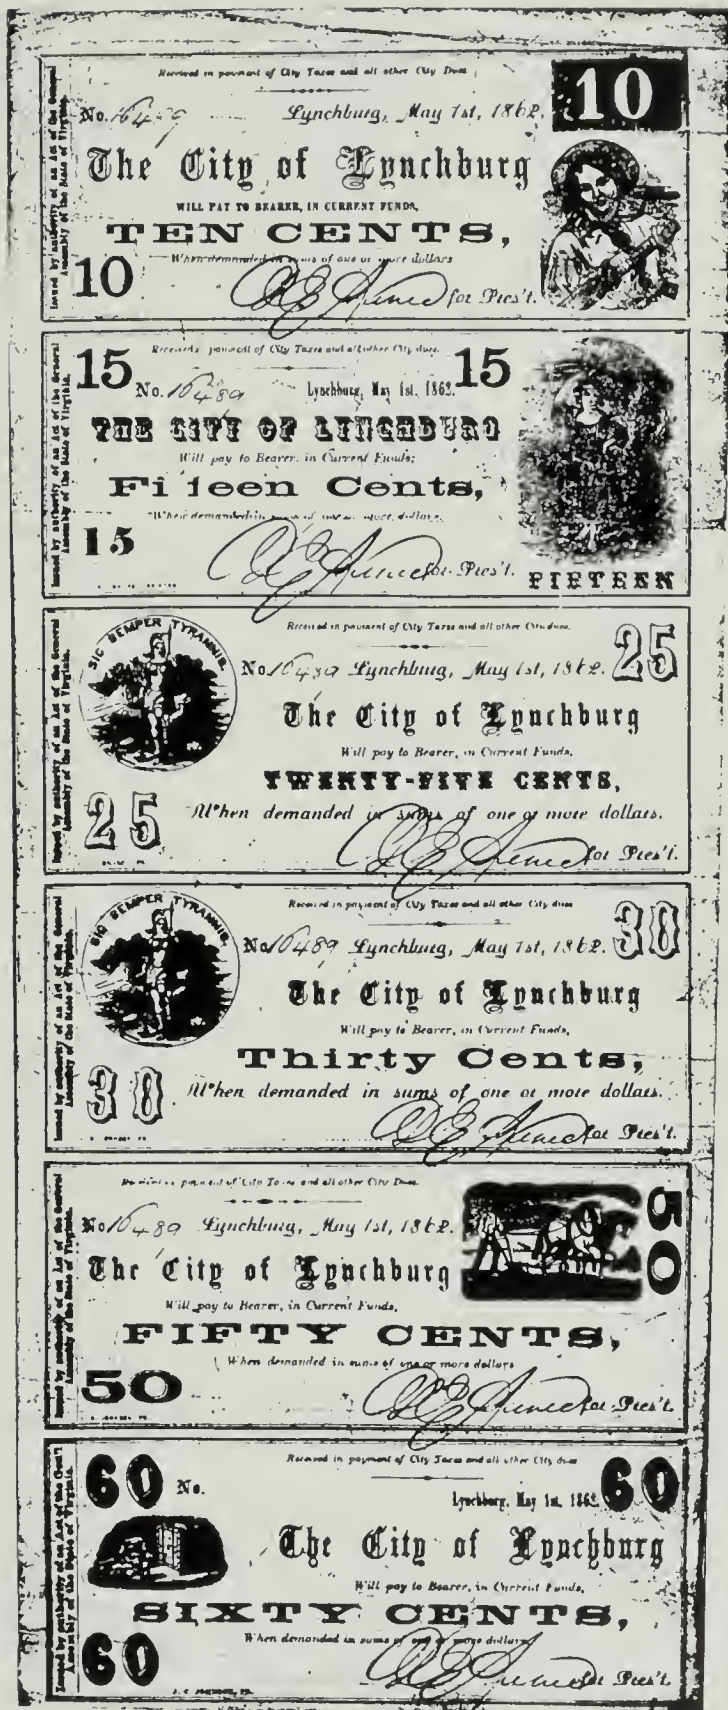 Issued by authority of an Act of the General
Assembly of the State of Virginia.
Received in payment of City Taxes and all other City Dues
10
No. 16489 Lynchburg, May 1st, 1862.
The City of Lynchburg
WILL PAY TO BEARER, IN CURRENT FUNDS,
TEN CENTS,
When demanded in sums of one or more dollars
10
for Pres't.
Issued by authority of an Act of the General
Assembly of the State of Virginia.
15 payment of City Taxes and all other City dues. 15
No. 16489 Lynchburg, May 1st, 1862.
THE CITY OF LYNCHBURG
Will pay to Bearer, in Current Funds;
Fifteen Cents,
When demanded in sums of one or more dollars,
15
for Pres't.
FIFTEEN
Issued by authority of an Act of the General
Assembly of the State of Virginia.
SIC SEMPER TYRANNIS.
Received in payment of City Taxes and all other City dues.
25
No 16489 Lynchburg, May 1st, 1862.
The City of Lynchburg
Will pay to Bearer, in Current Funds,
TWENTY-FIVE CENTS,
When demanded in sums of one or more dollars.
25
for Pres't.
Issued by authority of an Act of the General
Assembly of the State of Virginia.
SIC SEMPER TYRANNIS.
Received in payment of City Taxes and all other City dues
30
No 16489 Lynchburg, May 1st, 1862.
The City of Lynchburg
Will pay to Bearer, in Current Funds,
Thirty Cents,
When demanded in sums of one or more dollars.
30
for Pres't.
Issued by authority of an Act of the General
Assembly of the State of Virginia.
payment of City Taxes and all other City Dues
50
No 16489 Lynchburg, May 1st, 1862.
The City of Lynchburg
Will pay to Bearer, in Current Funds,
FIFTY CENTS,
When demanded in sums of one or more dollars
50
for Pres't.
Issued by authority of an Act of the Gen'l
Assembly of the State of Virginia.
Received in payment of City Taxes and all other City dues
60 No. 60
Lynchburg, May 1st, 1862.
The City of Lynchburg
Will pay to Bearer, in Current Funds,
SIXTY CENTS,
When demanded in sums of one or more dollars
60
for Pres't.